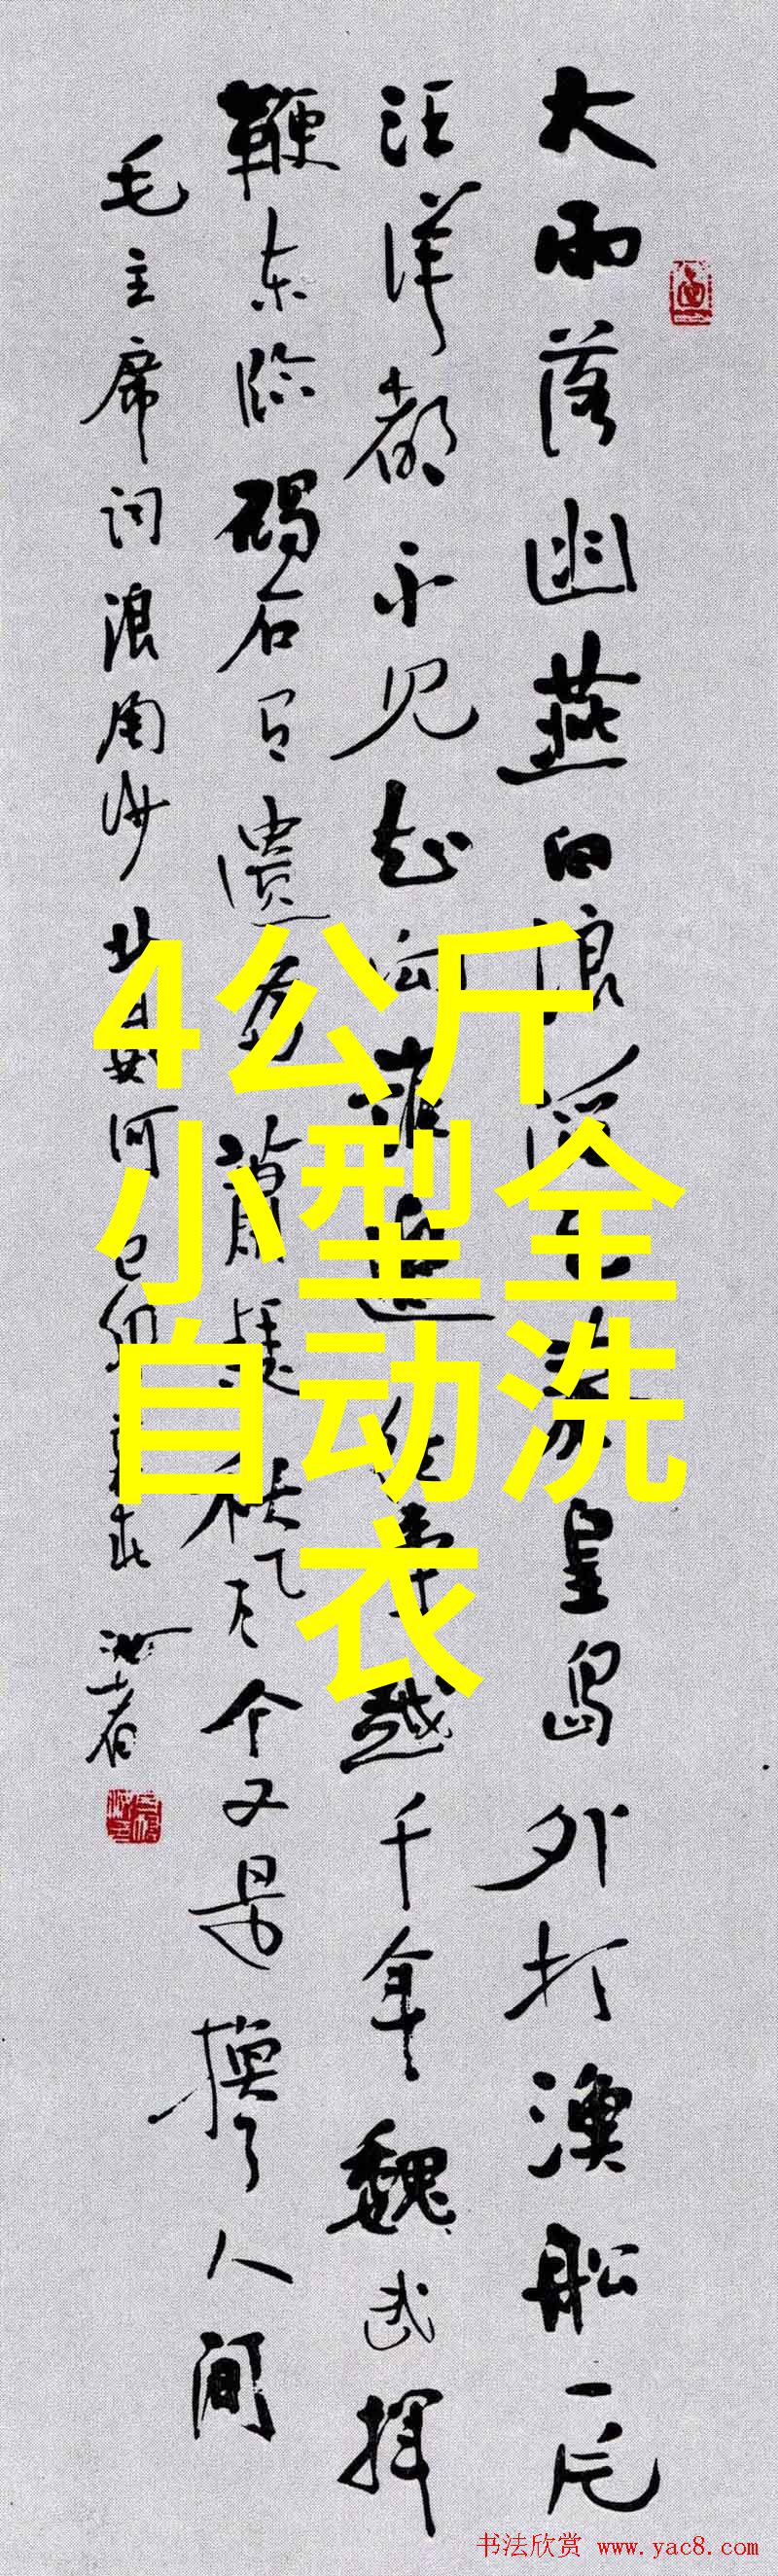 大雨落幽燕白浪滔天秦皇岛外打漁船一片
汪洋都不见知向誰邊往事越千年魏武揮
鞭东临碣石有遺篇蕭瑟秋风今又是換了人间
毛主席词浪淘沙北戴河己卯
4公斤
小型全
自动洗
衣
书法欣赏 www.yac8.com